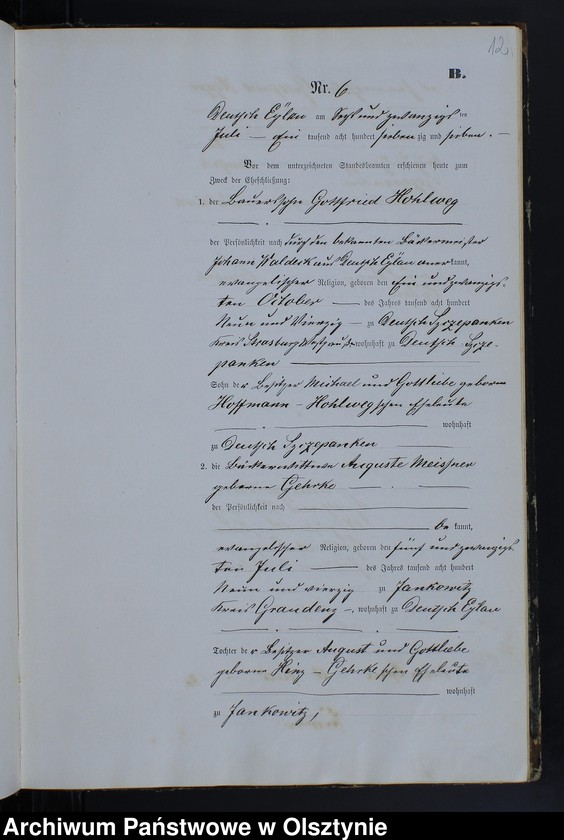 12.
B.
Nr. 6.
Deutsch Eylau am Sechs und zwanzigsten
Juli — Ein tausend acht hundert siebenzig und sieben. —
Vor dem unterzeichneten Standesbeamten erschienen heute zum
Zweck der Eheschließung:
1. der Bauerssohn Gottfried Hohlweg
der Persönlichkeit nach durch den bekannten Bäckermeister
Johann Waldeck aus Deutsch Eylau anerkannt,
evangelischer Religion, geboren den Ein und zwanzigs-
ten October — des Jahres tausend acht hundert
Neun und Vierzig — zu Deutsch Szczepanken
Kreis Strasburg Westpreuß. wohnhaft zu Deutsch Szcze-
panken —
Sohn der Besitzer Michael und Gottliebe geborne
Hoffmann - Hohlwegschen Eheleute
wohnhaft
zu Deutsch Szczepanken
2. die Bäckerwittwe Auguste Meissner
geborne Gehrke
der Persönlichkeit nach
bekannt,
evangelischer Religion, geboren den fünf und zwanzigs
ten Juli — des Jahres tausend acht hundert
Neun und vierzig zu Jankowitz
Kreis Graudenz —, wohnhaft zu Deutsch Eylau
Tochter der Besitzer August und Gottliebe
geborne Hinz - Gehrkeschen Eheleute
wohnhaft
zu Jankowitz;
Archiwum Państwowe w Olsztynie